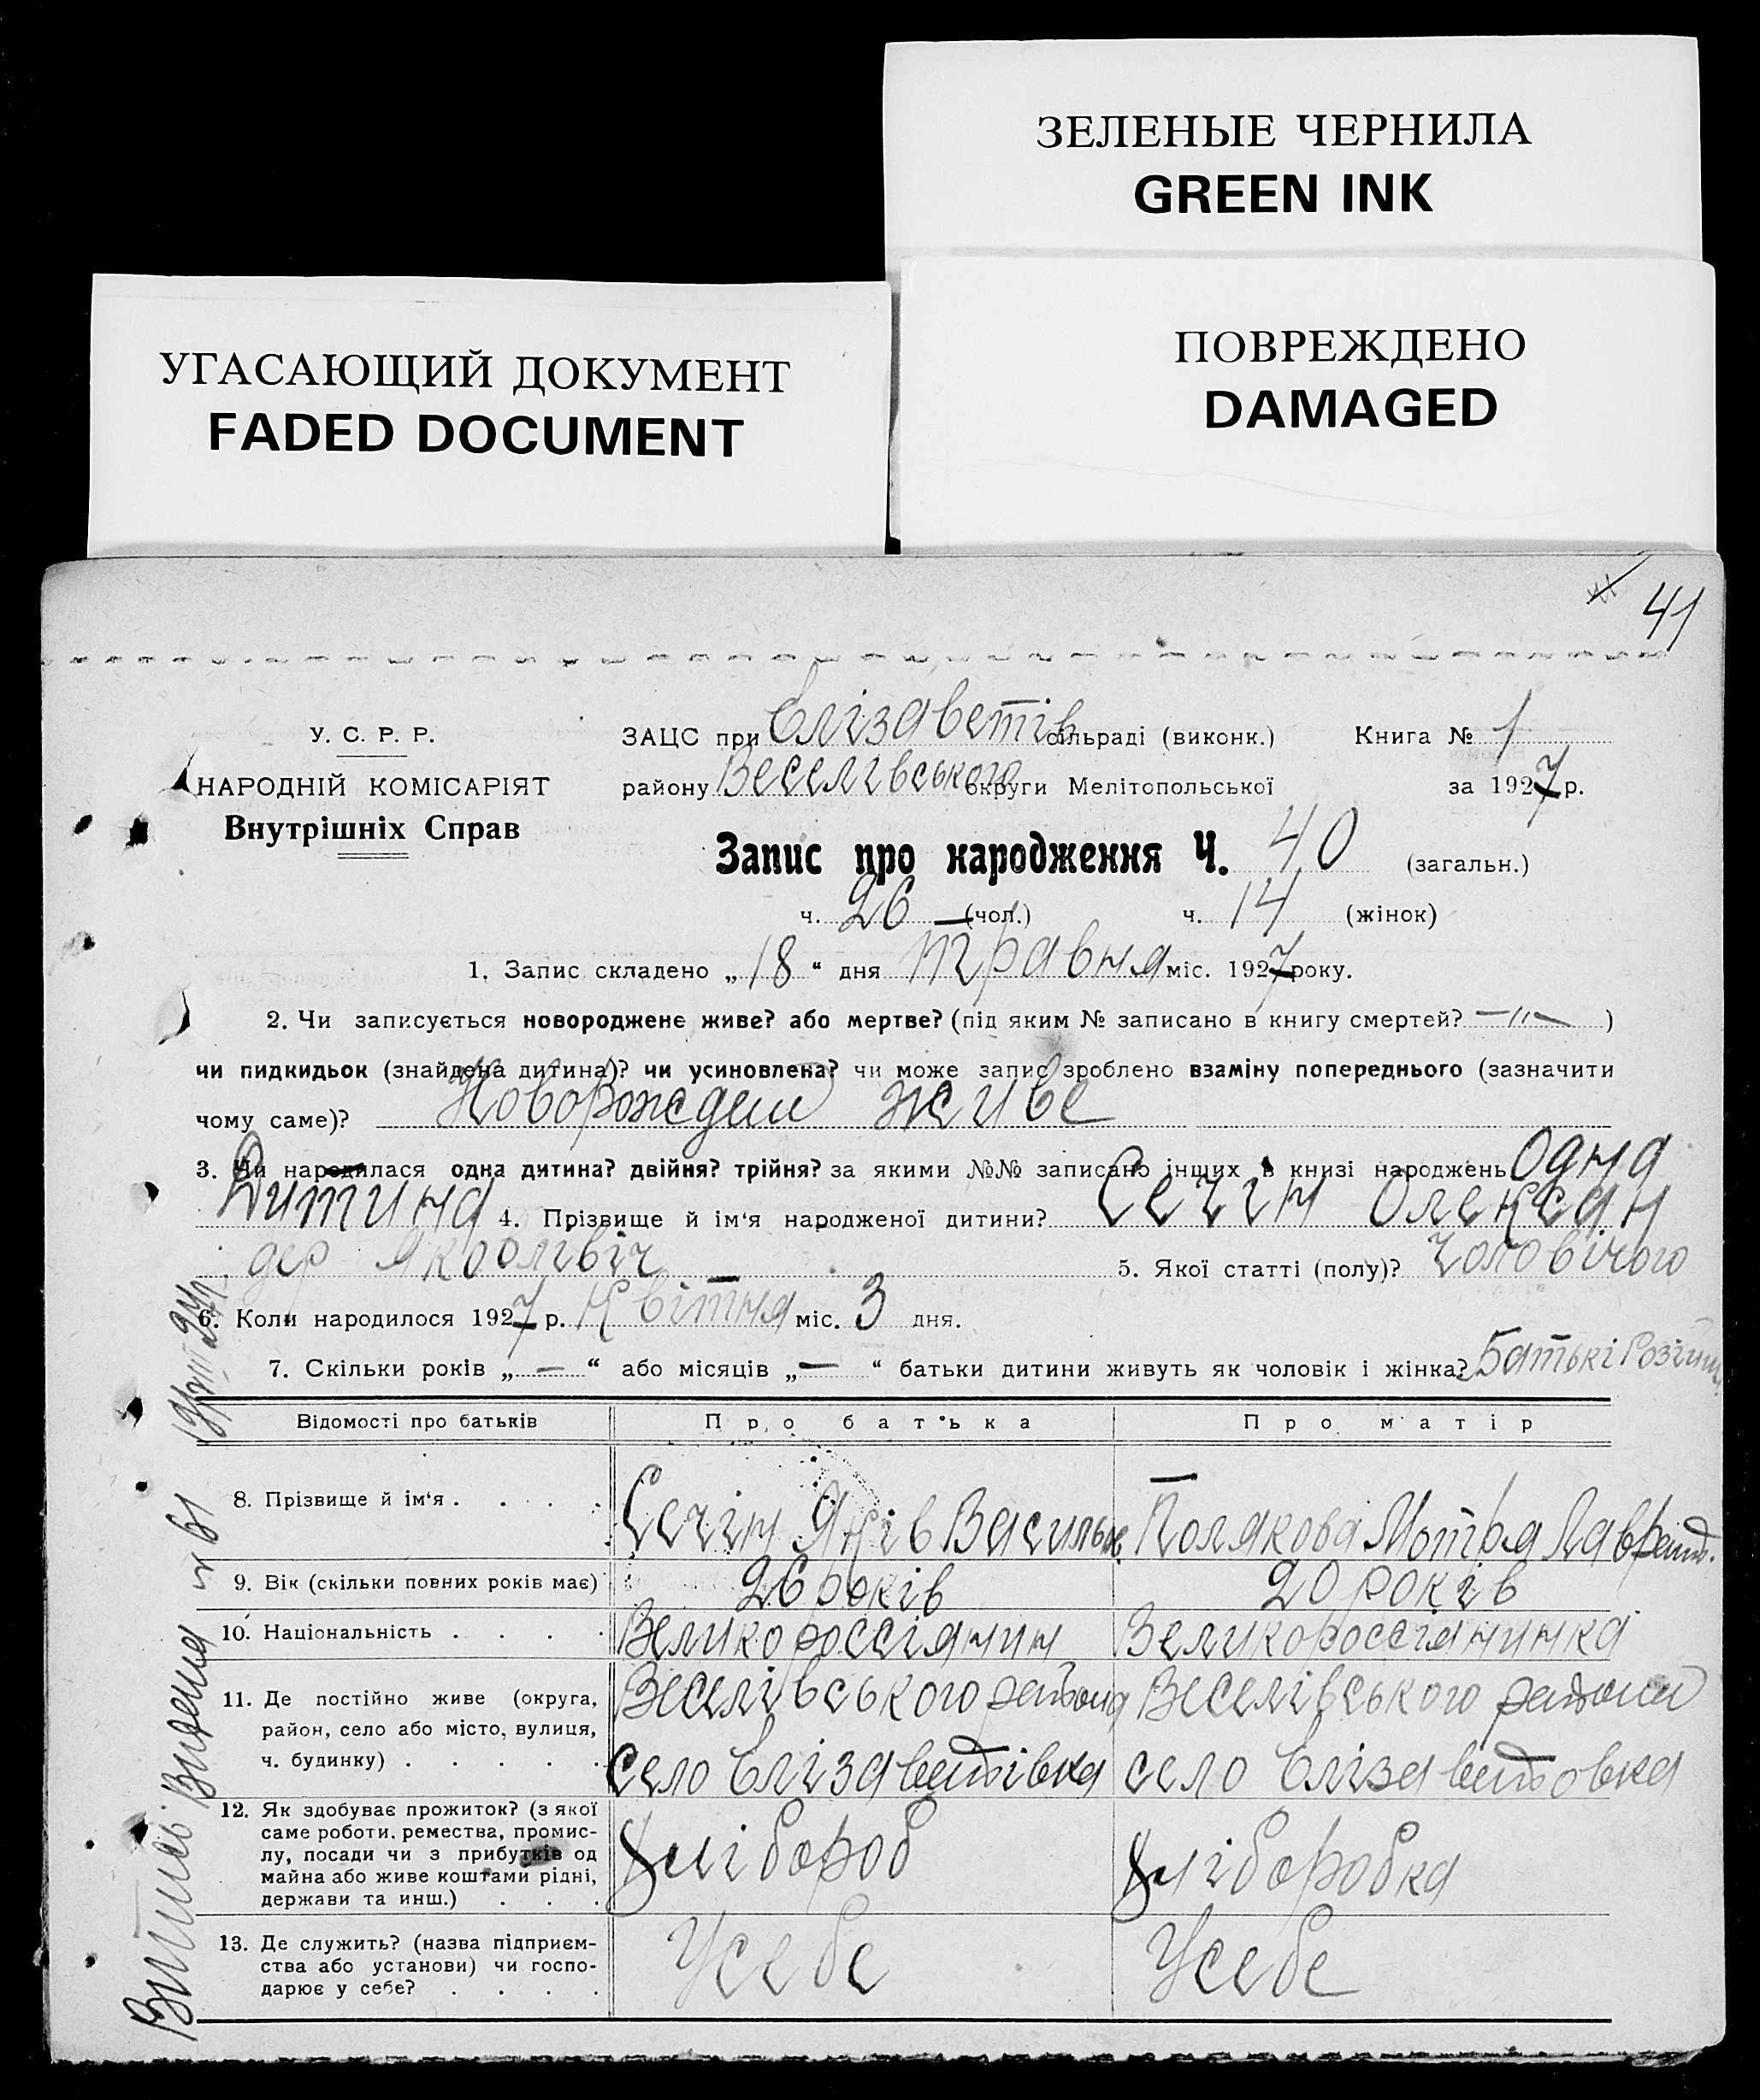 ЗЕЛЕНЫЕ ЧЕРНИЛА
GREEN INK
УГАСАЮЩИЙ ДОКУМЕНТ
FADED DOCUMENT
ПОВРЕЖДЕНО
DAMAGED
41
У. С. Р. Р.
НАРОДНІЙ КОМІСАРІЯТ
Внутрішніх Справ
ЗАЦС при Єлізаветів сільраді (виконк.) Книга № 1
району Веселівського округи Мелітопольської за 1927 р.
Запис про народження Ч. 40 (загальн.)
ч. 26 (чол.) ч. 14 (жінок)
1. Запис складено „18“ дня травня міс. 1927 року.
2. Чи записується новороджене живе? або мертве? (під яким № записано в книгу смертей? —〃— )
чи пидкидьок (знайдена дитина)? чи усиновлена? чи може запис зроблено взаміну попереднього (зазначити
чому саме)? живе
3. Чи народилася одна дитина? двійня? трійня? за якими №№ записано інших в книзі народжень Одна
Дитина 4. Прізвище й ім'я народженої дитини? Сечін Олексан
дер Яковлівіч 5. Якої статті (полу)? чоловічого
6. Коли народилося 1927 р. Квітня міс. 3 дня.
7. Скільки років „—“ або місяців „—“ батьки дитини живуть як чоловік і жінка? Батькі
Відомості про батьків Про батька Про матір
8. Прізвище й ім'я . . . . Сечін Яків Васильов Полякова Мотря Лаврент.
9. Вік (скільки повних років має) 26 років 20 років
10. Національність . . . . Великороссіянин Великороссіянинка
11. Де постійно живе (округа, район, село або місто, вулиця, ч. будинку) . . . . .
Веселівського района
село Єлізаветівка
Веселівського района
село Єлізаветовка
12. Як здобуває прожиток? (з якої саме роботи, ремества, промислу, посади чи з прибутків од майна або живе коштами рідні, держави та инш.) . . .
Хлібороб
Хліборобка
13. Де служить? (назва підприємства або установи) чи господарює у себе? . . . .
Усебе
Усебе